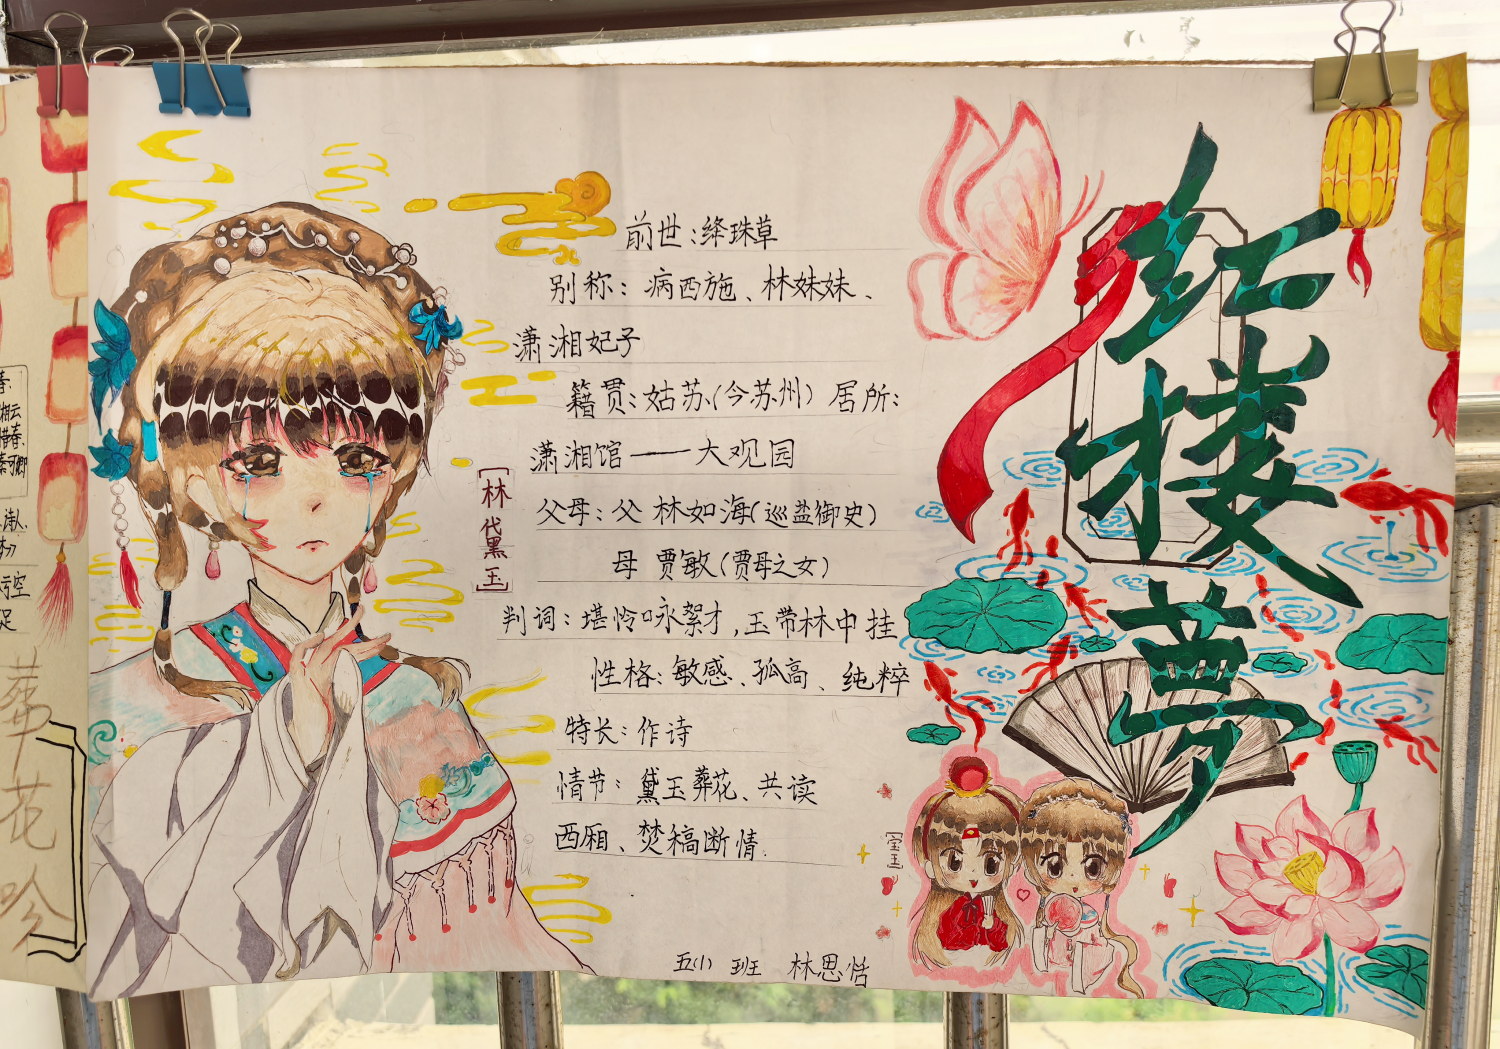 前世：绛珠草
别称：病西施、林妹妹、
潇湘妃子
籍贯：姑苏（今苏州）居所：
潇湘馆——大观园
父母：父 林如海（巡盐御史）
母 贾敏（贾母之女）
判词：堪怜咏絮才，玉带林中挂
性格：敏感、孤高、纯粹
特长：作诗
情节：黛玉葬花、共读
西厢、焚稿断情.
[林黛玉]
红楼梦
宝玉
班 林思恬
葬花吟